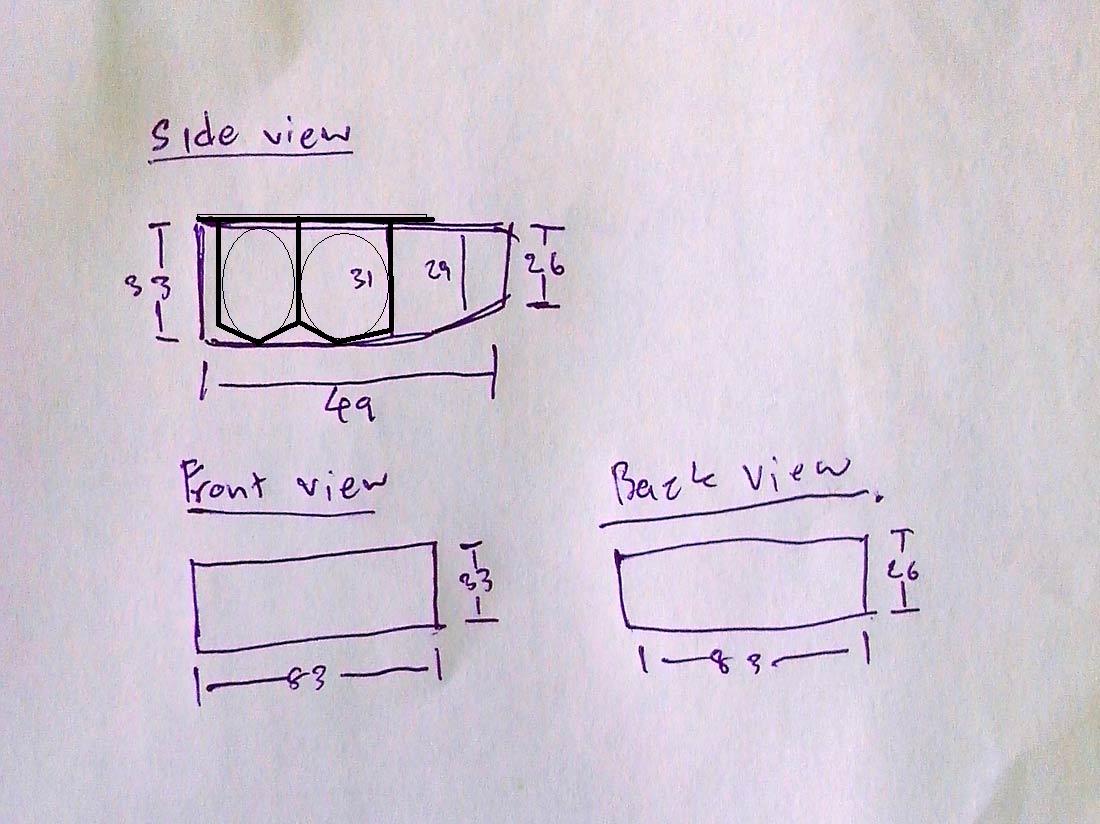 Side view
33
31
29
26
49
Front view
33
83
Back view.
26
83